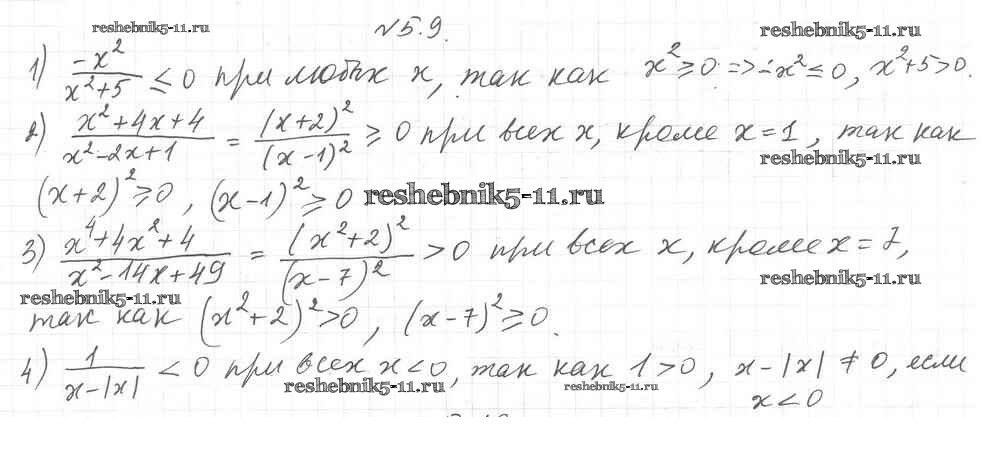 reshebnik5-11.ru
№5.9.
reshebnik5-11.ru
1) -x²/(x²+5) ≤ 0 при любых x, так как x² ≥ 0 => -x² ≤ 0, x²+5>0.
2) (x²+4x+4)/(x²-2x+1) = (x+2)²/(x-1)² ≥ 0 при всех x, кроме x=1, так как
reshebnik5-11.ru
(x+2)² ≥ 0, (x-1)² ≥ 0
reshebnik5-11.ru
3) (x⁴+4x²+4)/(x²-14x+49) = (x²+2)²/(x-7)² > 0 при всех x, кроме x=7,
reshebnik5-11.ru
reshebnik5-11.ru
так как (x²+2)²>0, (x-7)² ≥ 0.
4) 1/(x-|x|) < 0 при всех x<0, так как 1>0, x-|x| ≠ 0, если
reshebnik5-11.ru
reshebnik5-11.ru
x<0